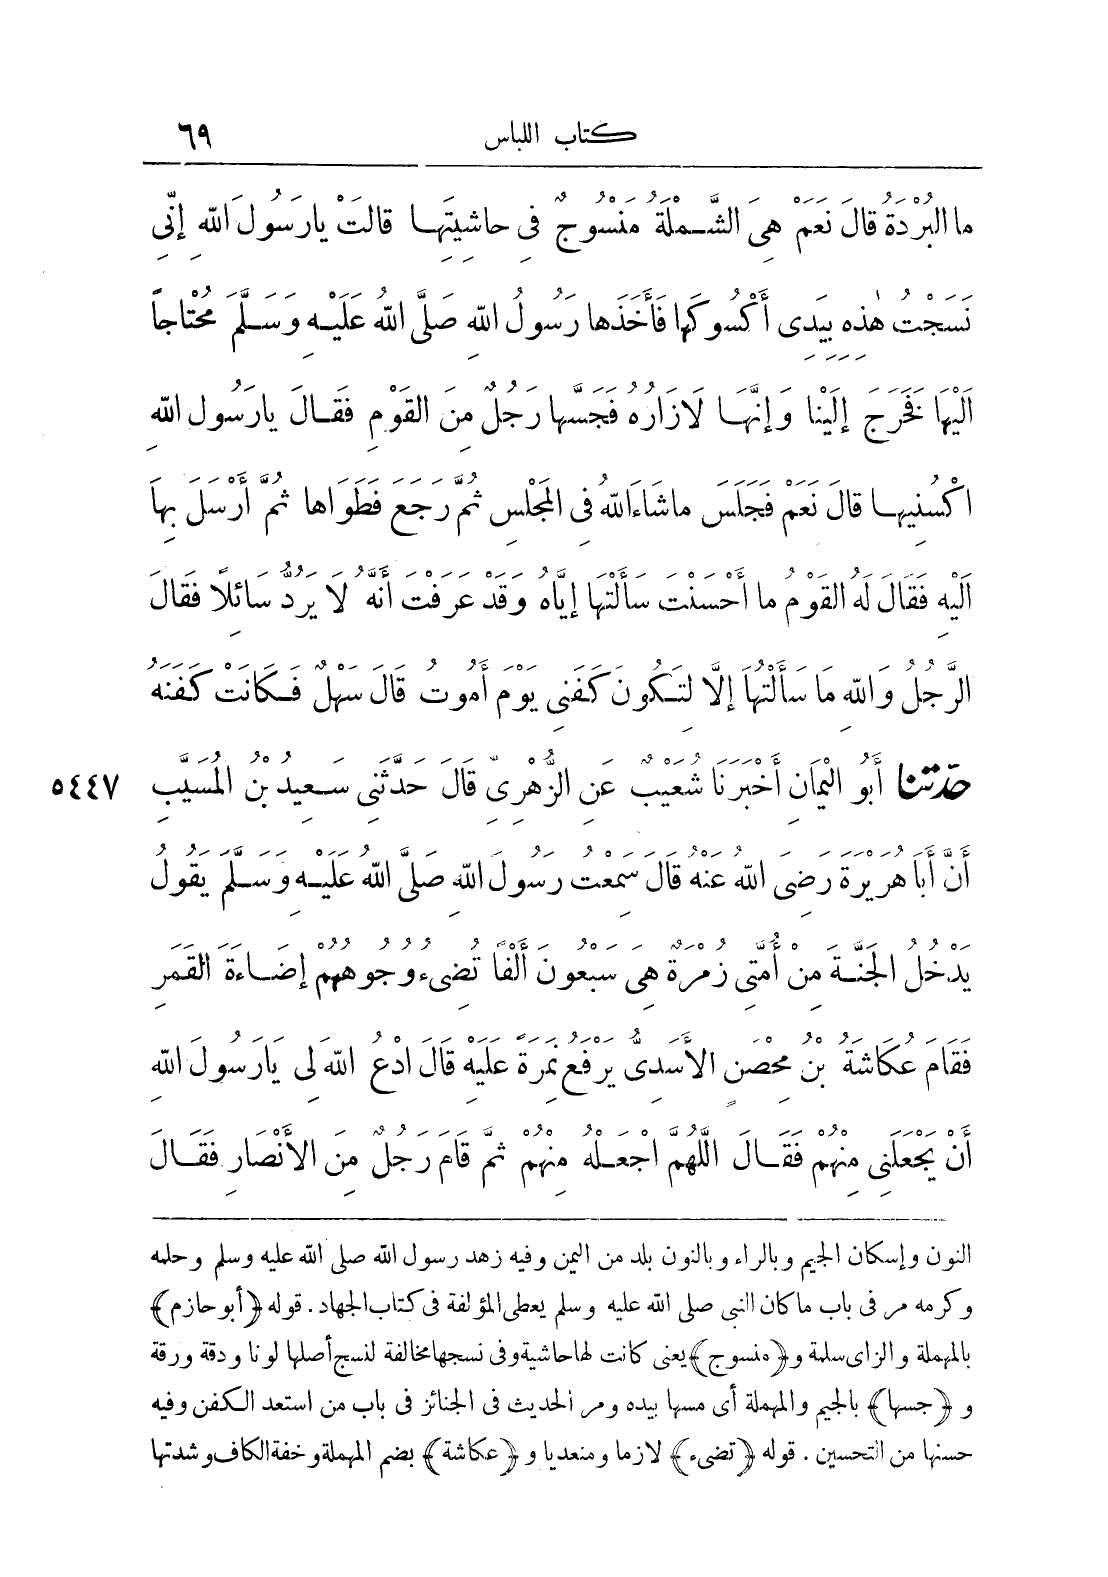 كتاب اللباس ٦٩
ما الْبُرْدَةُ قَالَ نَعَمْ هِىَ الشَّمْلَةُ مَنْسُوجٌ فِى حَاشِيَتِهَا قَالَتْ يَارَسُولَ اللهِ إِنِّى
نَسَجْتُ هٰذِهِ بِيَدِى أَكْسُوكَهَا فَأَخَذَهَا رَسُولُ اللهِ صَلَّى اللهُ عَلَيْهِ وَسَلَّمَ مُحْتَاجاً
اِلَيْهَا فَخَرَجَ إِلَيْنَا وَإِنَّهَا لَازَارُهُ فَجَسَّهَا رَجُلٌ مِنَ الْقَوْمِ فَقَالَ يَارَسُولَ اللهِ
اكْسُنِيهَا قَالَ نَعَمْ فَجَلَسَ مَا شَاءَ اللهُ فِى الْمَجْلِسِ ثُمَّ رَجَعَ فَطَوَاهَا ثُمَّ أَرْسَلَ بِهَا
اِلَيْهِ فَقَالَ لَهُ الْقَوْمُ مَا أَحْسَنْتَ سَأَلْتَهَا إِيَّاهُ وَقَدْ عَرَفْتَ أَنَّهُ لَا يَرُدُّ سَائِلًا فَقَالَ
الرَّجُلُ وَاللهِ مَا سَأَلْتُهَا إِلَّا لِتَكُونَ كَفَنِى يَوْمَ أَمُوتُ قَالَ سَهْلٌ فَكَانَتْ كَفَنَهُ
٥٤٤٧ حَدَّثَنَا أَبُو الْيَمَانِ أَخْبَرَنَا شُعَيْبٌ عَنِ الزُّهْرِىِّ قَالَ حَدَّثَنِى سَعِيدُ بْنُ الْمُسَيَّبِ
أَنَّ أَبَا هُرَيْرَةَ رَضِىَ اللهُ عَنْهُ قَالَ سَمِعْتُ رَسُولَ اللهِ صَلَّى اللهُ عَلَيْهِ وَسَلَّمَ يَقُولُ
يَدْخُلُ الْجَنَّةَ مِنْ أُمَّتِى زُمْرَةٌ هِىَ سَبْعُونَ أَلْفًا تُضِىءُ وُجُوهُهُمْ إِضَاءَةَ الْقَمَرِ
فَقَامَ عُكَاشَةُ بْنُ مِحْصَنٍ الْأَسَدِىُّ يَرْفَعُ نَمِرَةً عَلَيْهِ قَالَ ادْعُ اللهَ لِى يَارَسُولَ اللهِ
أَنْ يَجْعَلَنِى مِنْهُمْ فَقَالَ اللَّهُمَّ اجْعَلْهُ مِنْهُمْ ثُمَّ قَامَ رَجُلٌ مِنَ الْأَنْصَارِ فَقَالَ
النون وإسكان الجيم وبالراء وبالنون بلد من اليمن وفيه زهد رسول الله صلى الله عليه وسلم وحلمه
وكرمه مر فى باب ما كان النبى صلى الله عليه وسلم يعطى المؤلفة فى كتاب الجهاد. قوله ﴿أبو حازم﴾
بالمهملة والزاى سلمة و﴿منسوج﴾ يعنى كانت لها حاشية وفى نسجها مخالفة لنسج أصلها لونا ودقة ورقة
و ﴿جسها﴾ بالجيم والمهملة أى مسها بيده ومر الحديث فى الجنائز فى باب من استعد الكفن وفيه
حسنها من التحسين. قوله ﴿تضىء﴾ لازما ومتعديا و ﴿عكاشة﴾ بضم المهملة وخفة الكاف وشدتها